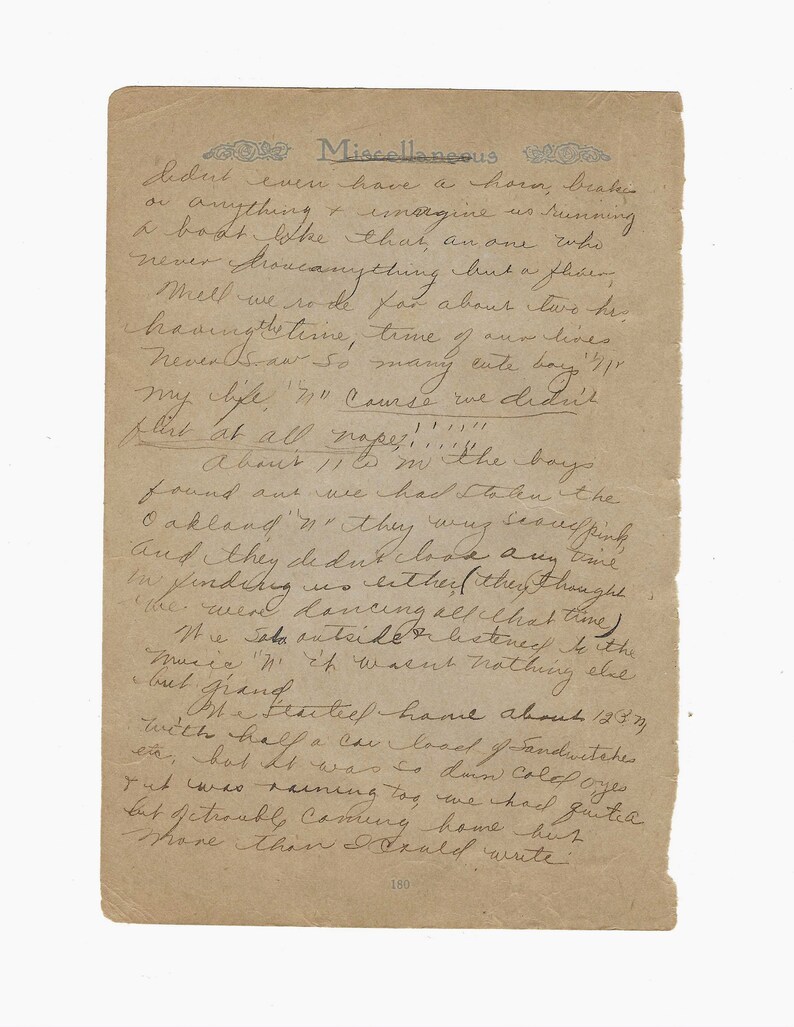 Miscellaneous
didn't even have a horn, brakes
or anything & imagine us running
a boat like that, an one who
never drove anything but a flivver,
Well we rode for about two hrs,
having the time, time of our lives
never saw so many cute boys "N"
my life, "N" course we didn't
flirt at all nope!!!!!!
About 11 P M the boys
found out we had stolen the
Oakland "N" they wuz scared pink,
and they didn't lose any time
in finding us either (they thought
we were dancing all that time)
We sat outside & listened to the
music "N" it wasn't nothing else
but grand
We started home about 12 P. M,
with half a car load of Sandwitches
etc, but it was so durn cold o, yes
& it was raining too, we had quite a
bit of trouble coming home but
more than I could write
180